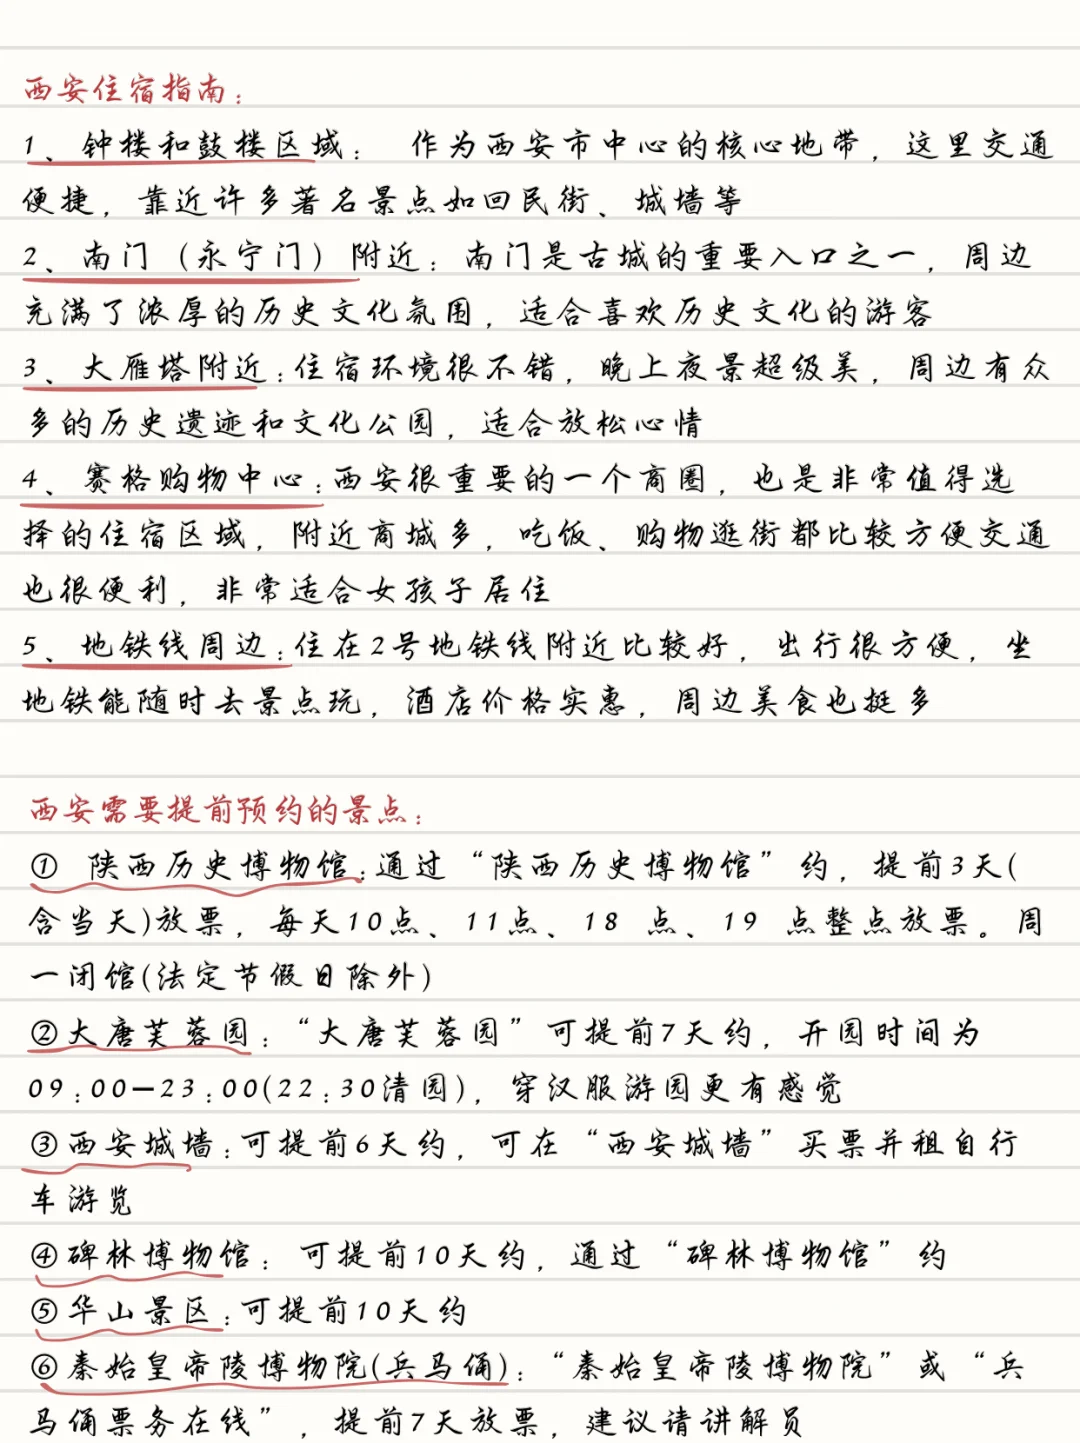 西安住宿指南：
1、钟楼和鼓楼区域： 作为西安市中心的核心地带，这里交通
便捷，靠近许多著名景点如回民街、城墙等
2、南门（永宁门）附近：南门是古城的重要入口之一，周边
充满了浓厚的历史文化氛围，适合喜欢历史文化的游客
3、大雁塔附近:住宿环境很不错，晚上夜景超级美，周边有众
多的历史遗迹和文化公园，适合放松心情
4、赛格购物中心:西安很重要的一个商圈，也是非常值得选
择的住宿区域，附近商城多，吃饭、购物逛街都比较方便交通
也很便利，非常适合女孩子居住
5、地铁线周边:住在2号地铁线附近比较好，出行很方便，坐
地铁能随时去景点玩，酒店价格实惠，周边美食也挺多
西安需要提前预约的景点：
① 陕西历史博物馆:通过“陕西历史博物馆”约，提前3天(
含当天)放票，每天10点、11点、18 点、19 点整点放票。周
一闭馆(法定节假日除外)
②大唐芙蓉园：“大唐芙蓉园”可提前7天约，开园时间为
09:00—23:00(22:30清园)，穿汉服游园更有感觉
③西安城墙:可提前6天约，可在“西安城墙”买票并租自行
车游览
④碑林博物馆：可提前10天约，通过“碑林博物馆”约
⑤华山景区:可提前10天约
⑥秦始皇帝陵博物院(兵马俑)：“秦始皇帝陵博物院”或“兵
马俑票务在线”，提前7天放票，建议请讲解员